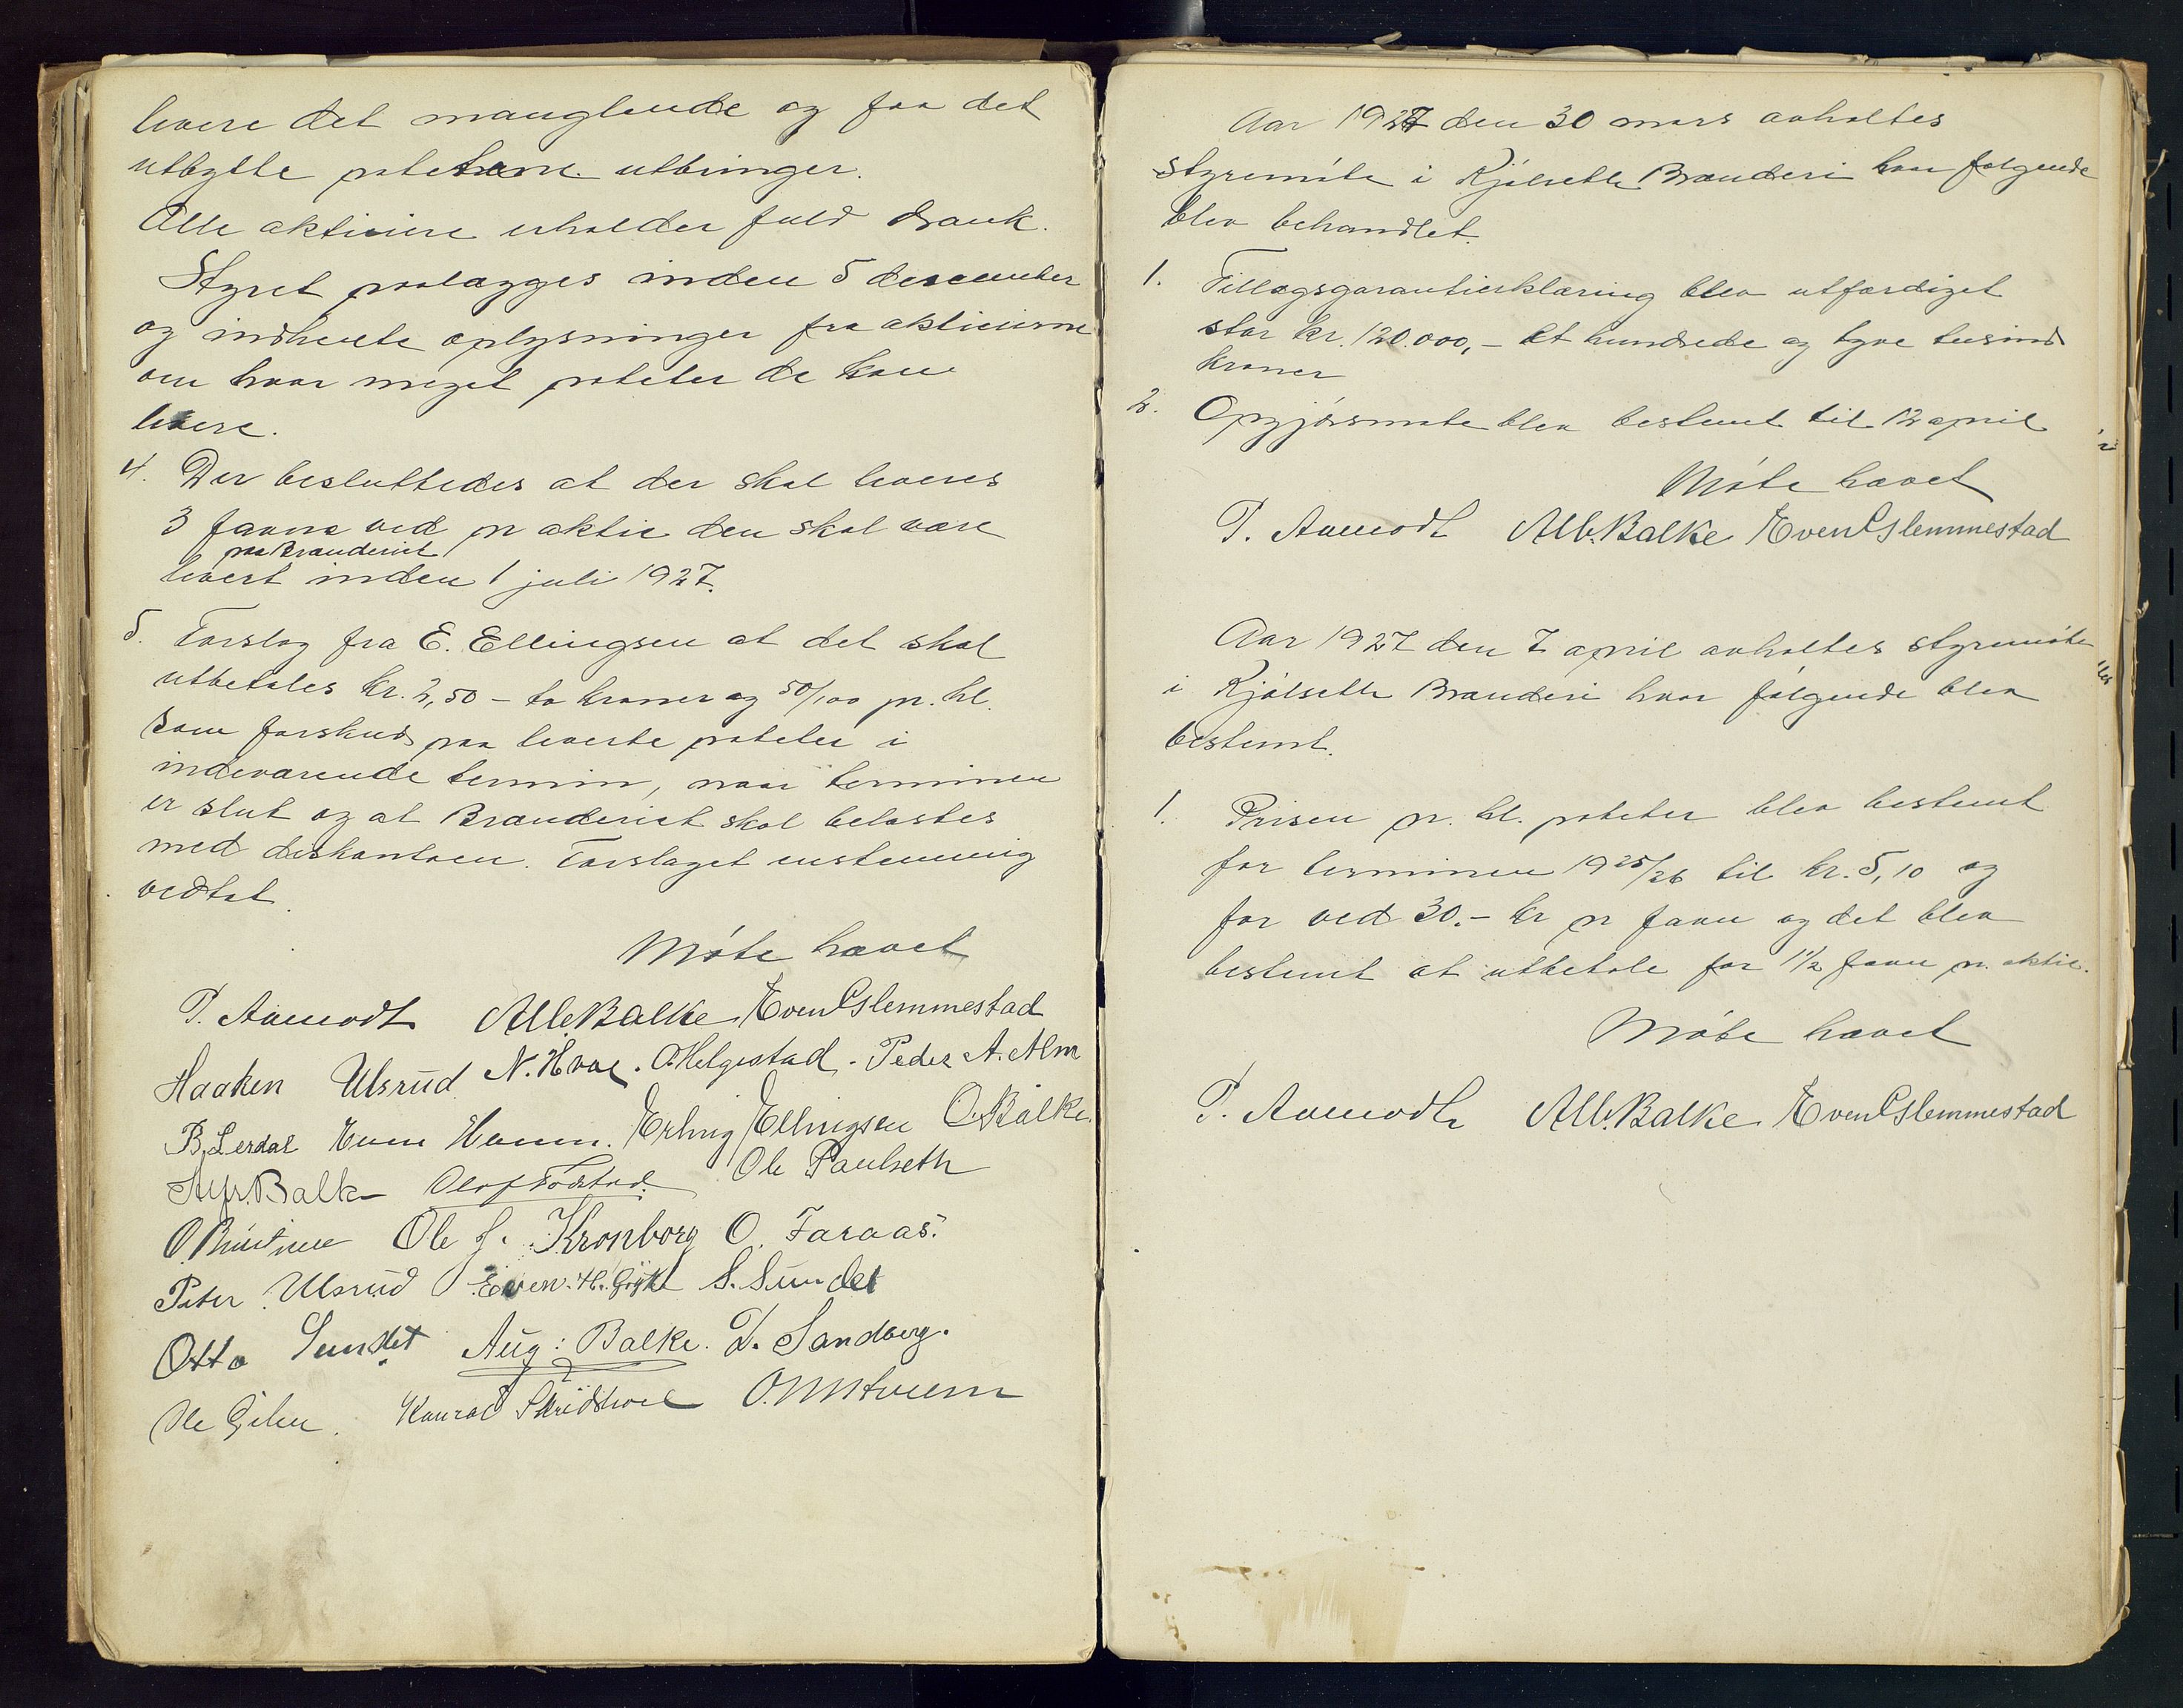 levere det manglende og faa det
utbytte potetene utbringer.
Alle aktieiere erholder fuld drank.
Styret paalægges inden 5 desember
og indhente oplysninger fra aktieierne
om hvor meget poteter de kan
levere.
4. Der besluttedes at der skal leveres
3 favne ved pr aktie den skal være
paa Brænderiet
levert inden 1 juli 1927.
5. Forslag fra E. Ellingsen at det skal
utbetales kr. 2,50 – to kroner og 50/100 pr. hl.
som forskud paa leverte poteter i
indeværende termin, naar terminen
er slut og at Brænderiet skal belastes
med diskontoen. Forslaget enstemmig
vedtat.
Møte hævet
P. Aamodt Alb. Balke Even Eslemmestad
Haaken Ulsrud N. Hval. O Helgestad. Peder A. Alm
B. Lerdal Even Erling Ellingsen O. Balke.
Alfr. Balke Ole Paulseth
Ole J. Kronborg O. Faraas.
Peter Ulsrud Even. H. S. Sundet
Otto Sundet Aug: Balke. D. Sandberg.
Ole Konrad
Aar 1927 den 30 mars avholtes
styremøte i Kjølseth Brænderi hvor følgende
blev behandlet.
1. Tillægsgarantierklæring blev utfærdiget
stor kr. 120.000,- et hundrede og tyve tusind
kroner
2. Opgjørsmøte blev bestemt til 12 april
Møte hævet
P. Aamodt Alb. Balke Even Eslemmestad
Aar 1927 den 7 april avholtes styremøte
i Kjølseth Brænderi hvor følgende blev
bestemt.
1. Prisen pr. hl. poteter blev bestemt
for terminen 1925/26 til kr. 5,10 og
for ved 30.- kr pr favn og det blev
bestemt at utbetale for 1 1/2 favn pr. aktie.
Møte hævet
P. Aamodt Alb. Balke Even Eslemmestad